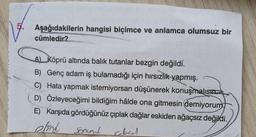 5. Aşağıdakilerin hangisi biçimce ve anlamca olumsuz bir
cümledir?
A) Köprü altında balık tutanlar bezgin değildi.
B) Genç adam iş bulamadığı için hırsızlık yapmış.
C) Hata yapmak istemiyorsan düşünerek konuşmalısın.
D) Özleyeceğimi bildiğim hâlde ona gitmesin demiyorum.
E) Karşıda gördüğünüz çıplak dağlar eskiden ağaçsız değildi.